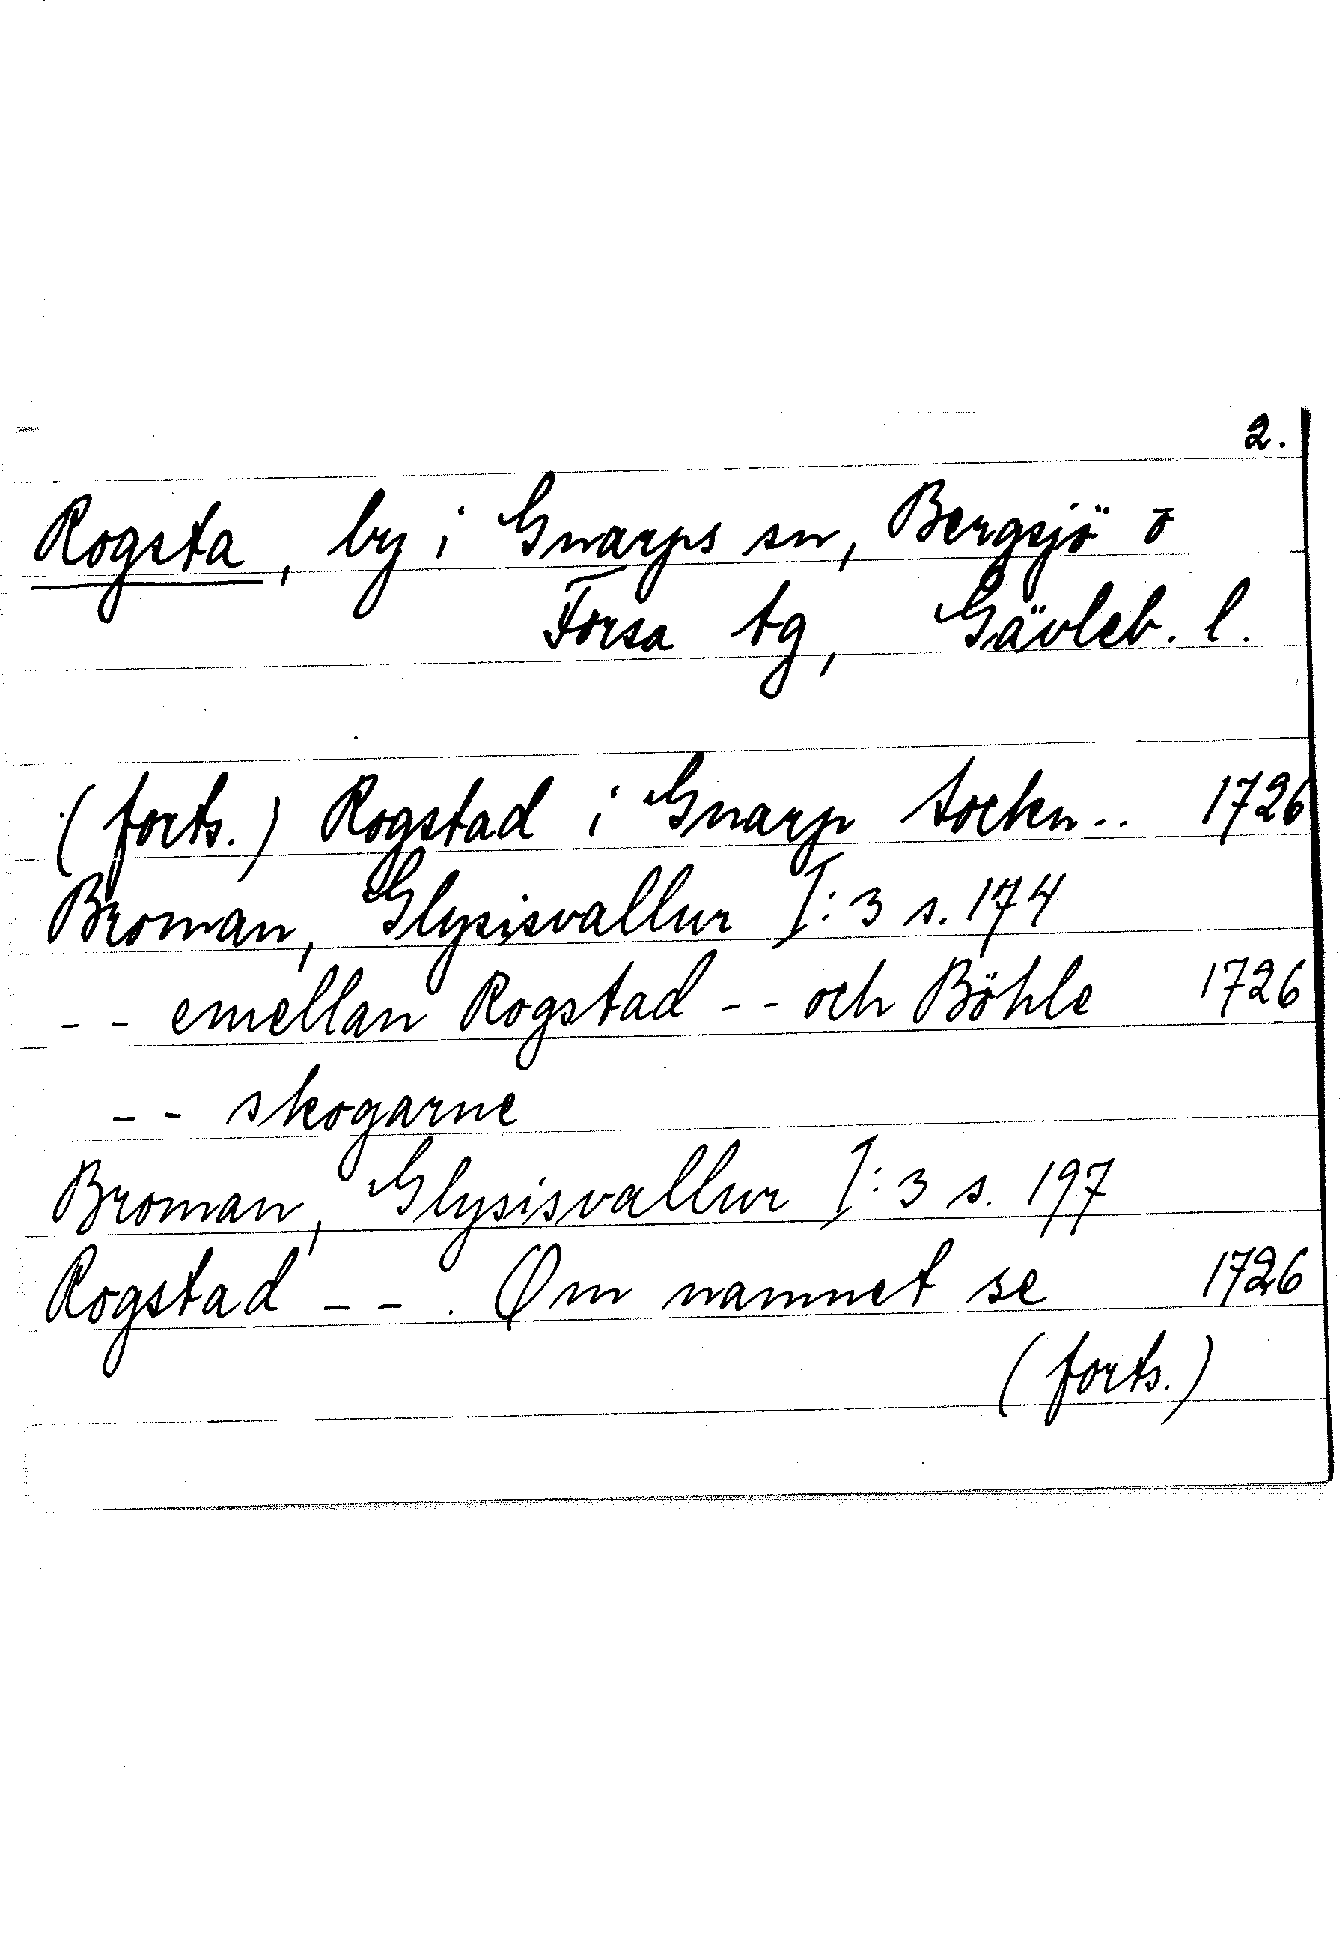 2.
Rogsta, by i Gnarps sn, Bergsjö o
Forsa tg, Gävleb. l.
(forts.) Rogstad i Gnarp Sockn.. 1726
Broman, Glysisvallur I:3 s. 174
-- emellan Rogstad -- och Böhle 1726
-- skogarne
Broman, Glysisvallur I:3 s. 197
Rogstad --. Om namnet se 1726
(forts.)